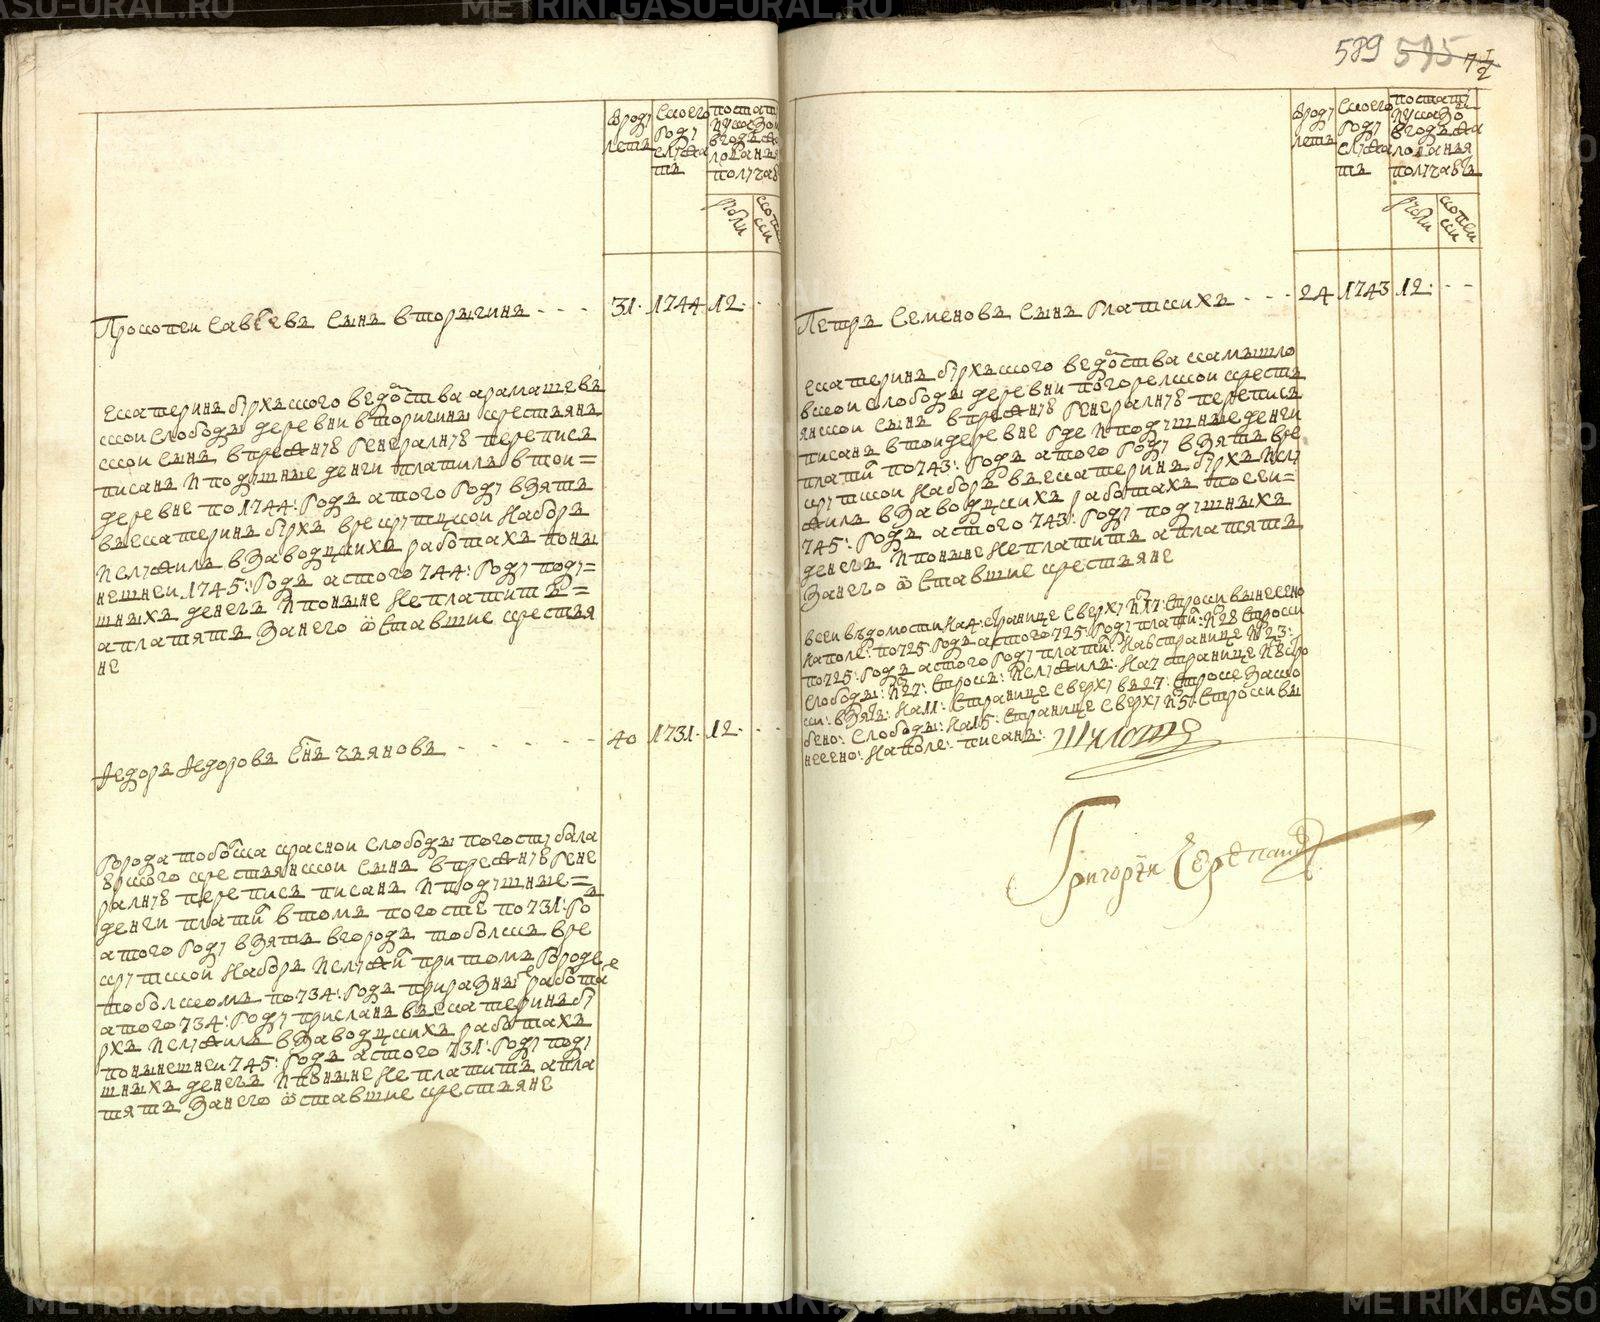 METRIKI.GASO-URAL.RU
отроду
летъ
с коего
году
служа
тъ
по стату
и указо
в годъ жа
лованья
получаетъ
рубли
копеи
ки
Прокопеи Савеевъ сынъ вторыгинъ
31. 1744 12.
Екатеринъ бурхъского ведомства арамашевъ
скои слободы деревни вторигины крестьянъ
скои сынъ в прежнюю генералную переписъ
писанъ и подушные денги платилъ в тои
деревне по 1744: годъ а того году взятъ
въ Екатеринъ бурхъ в рекрутцкои наборъ
и служилъ в заводцкихъ работахъ по ны
нешнеи 1745: годъ а с того 744: году поду
шныхъ денегъ и поныне не платитъ
а платятъ за него оставшие крестья
не
Федоръ Федоровъ сынъ чьяновъ
40 1731. 12.
Города тобольска красной слободы погосту бала
крестьянскои сынъ в прежнюю гене
ралную переписъ писанъ и подушные
денги платилъ в томъ погосте по 731: го
а того году взятъ в городъ тоболскъ в ре
крутскои наборъ и служилъ при томъ городе
тоболскомъ по 734: годъ при разныхъ работа
а того 734: году присланъ въ Екатеринъ бу
рхъ и служилъ в заводцкихъ работахъ
по нынешнеи 745: годъ а с того 731: году поду
шныхъ денегъ и поныне не платитъ а пла
тятъ за него оставшие крестьяне
589 595 7 1/2
отроду
летъ
с коего
году
служа
тъ
по стату
и указо
в годъ жа
лованья
получаетъ
рубли
копеи
ки
Петръ Семеновъ сынъ Глаткихъ
24 1743 12.
Екатеринъ бурхъского ведомства камышло
вскои слободы деревни погорелской кресть
янской сынъ в прежнюю генералную переписъ
писанъ в тои деревне где и подушные денги
платилъ по 743: годъ а того году взятъ в ре
крутскои наборъ въ Екатеринъ бурхъ и слу
жилъ в заводцкихъ работахъ по сеи
745: годъ а с того 743: году подушныхъ
денегъ и поныне не платитъ а платятъ
за него оставшие крестьяне
в сеи ведомости на 4: странице сверху 17: строки вынесено
на поле: по 725: годъ а с того 725: году платилъ: 28 строки
по 725: годъ а с того году платилъ:
слободы: 27: строкъ: и служилъ: на 7 странице
взятъ: на 11: странице сверху в 27: строке
слободы: на 15: странице сверху 5: строки вы
несено: на поле: писанъ:
Григорей Черепанов